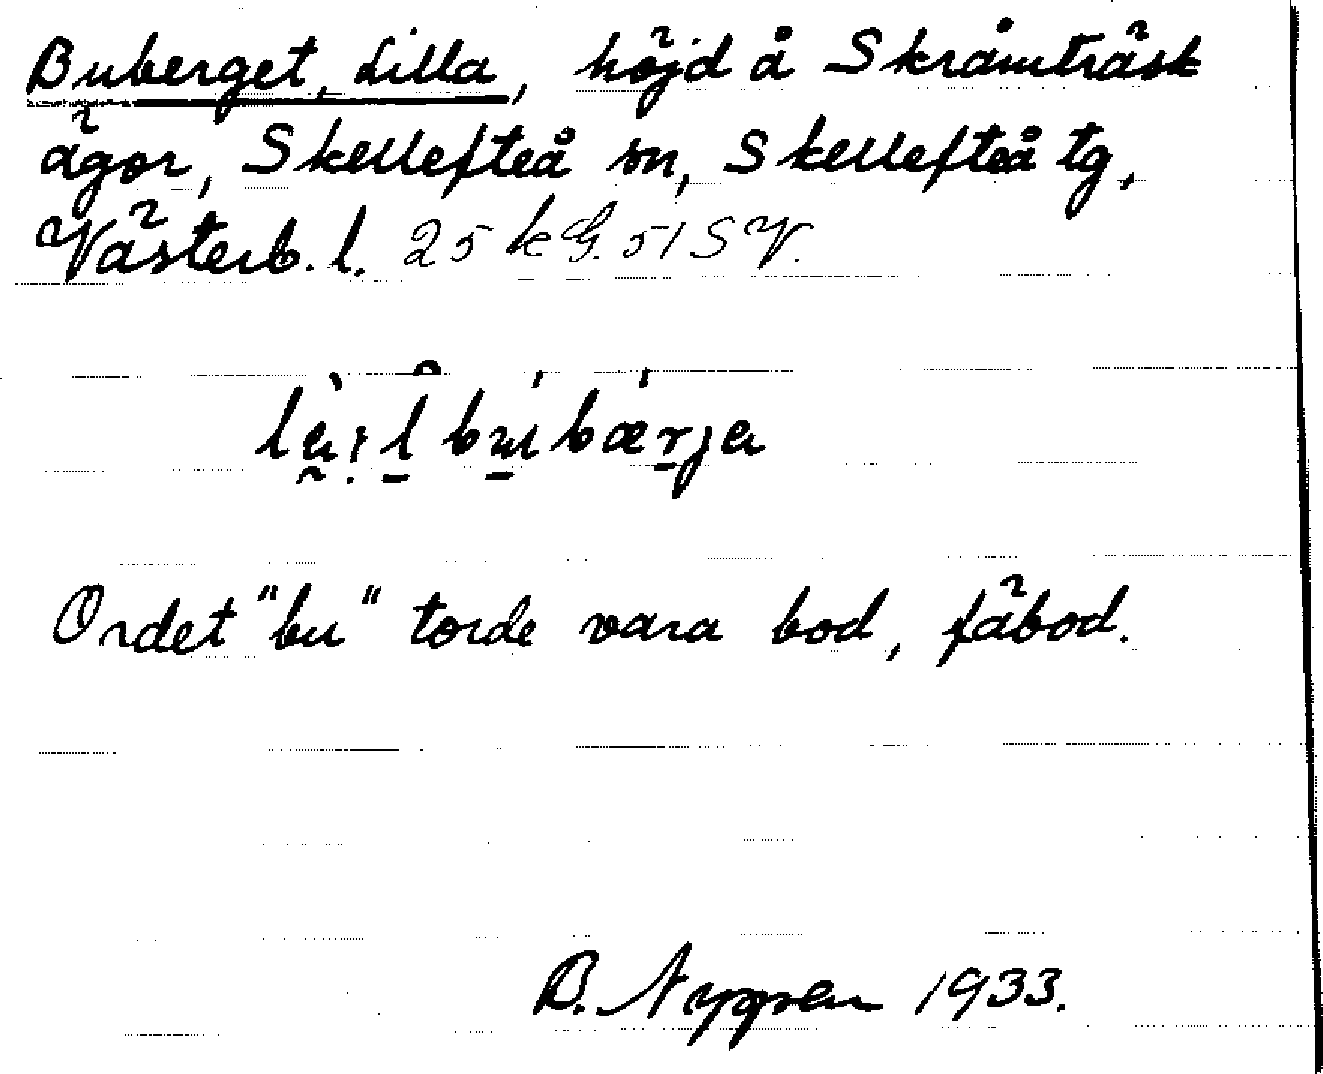 Buberget, Lilla, höjd å Skråmträsk
ägor, Skellefteå sn, Skellefteå tg,
Västerb. l. 25 k G. 51 S V.
Ordet "bu" torde vara bod, fäbod.
B. 1933.